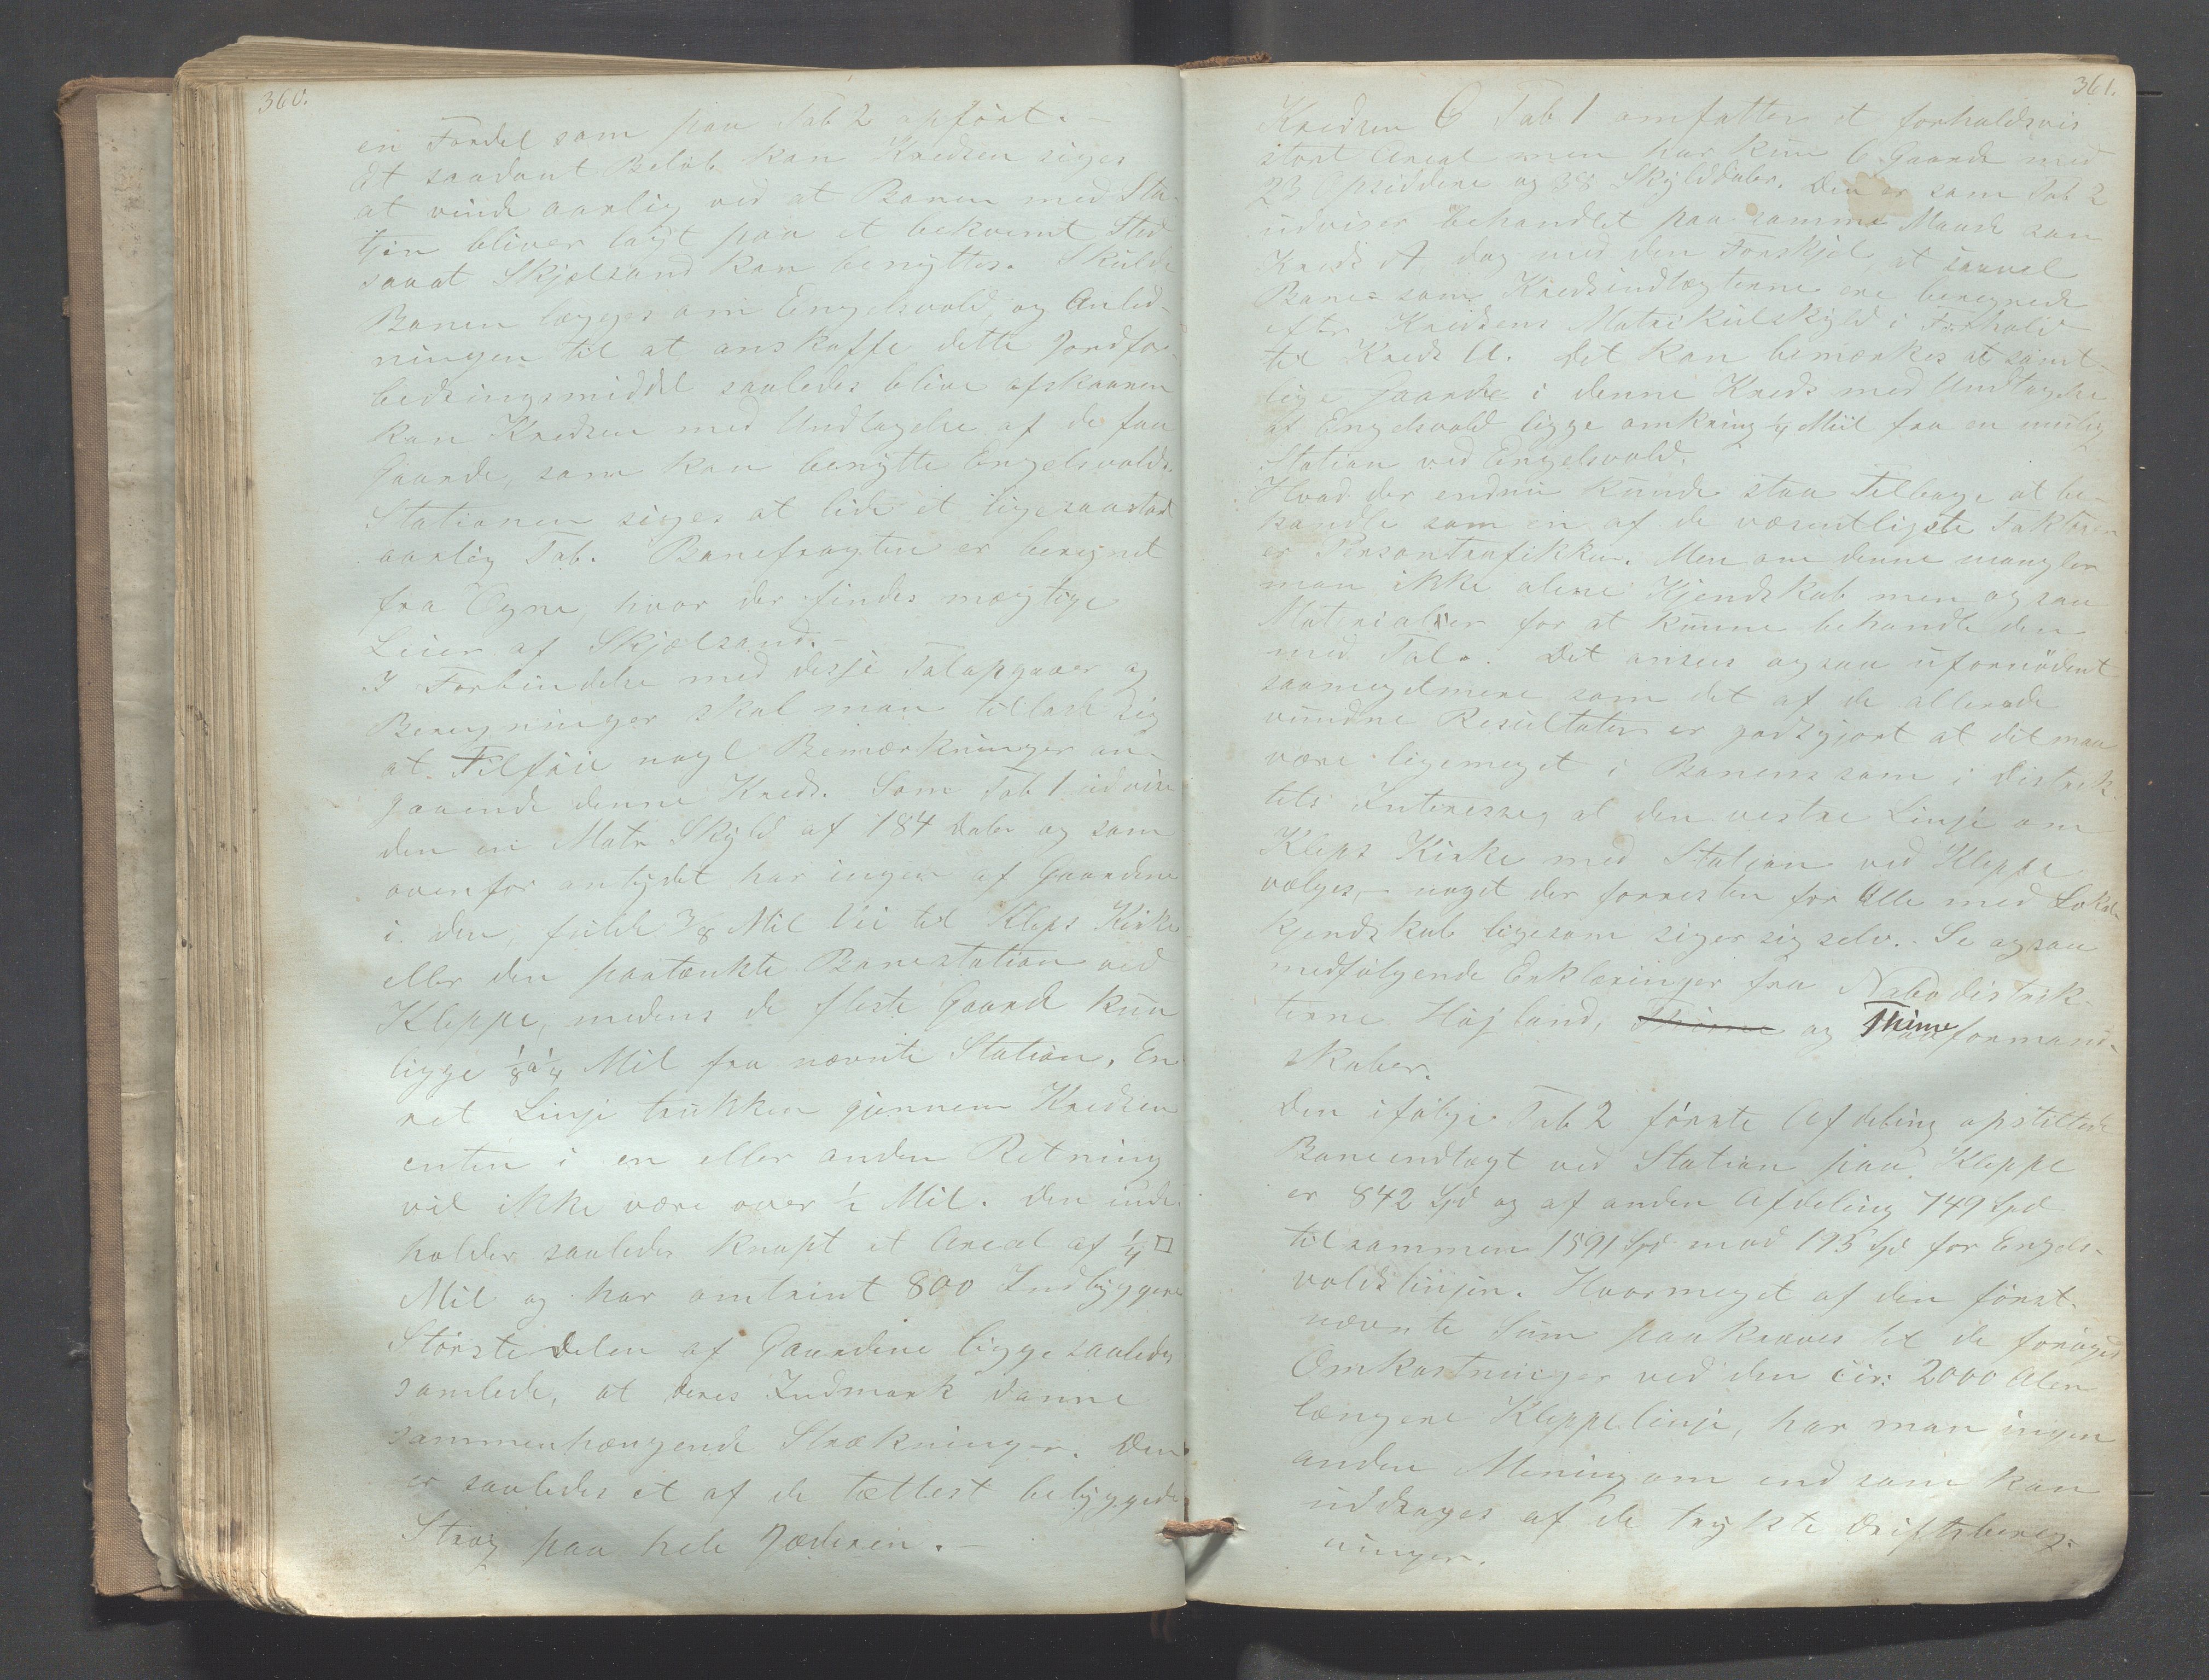 360.
en Fordel som paa Tab 2 opført. –
Et saadant Beløb kan Kredsen siges
at vinde aarlig ved at Banen med Sta-
tion bliver lagt paa et bekvemt Sted
saaat Skjælsand kan benyttes. Skulde
Banen lægges om Engelsvold, og Anled-
ningen til at anskaffe dette Jordfor-
bedringsmiddel saaledes blive afskaaren
kan Kredsen med Undtagelse af de faa
Gaarde, som kan benytte Engelsvolds-
Stationen siges at lide et ligesaastort
aarlig Tab. Banefragten er beregnet
fra Ogne, hvor der findes mægtige
Leier af Skjælsand. –
I Forbindelse med disse Talopgaver og
Beregninger skal man tillade sig
at Tilføie nogle Bemærkninger an-
gaaende denne Kreds. Som Tab 1 udvise
den en Matr Skyld af 184 Daler og som
ovenfor antydet har ingen af Gaardene
i den, fulde 3/8 Mil Vei til Kleps Kirke
eller den paatænkte Banestation ved
Kleppe, medens de fleste Gaarde kun
ligge 1/8 a 1/4 Mil fra nævnte Station. En
ret Linje trukken gjennem Kredsen
enten i en eller anden Retning
vil ikke være over 1/2 Mil. Den inde-
holder saaledes knapt et Areal af 1/4 □
Mil og har omtrint 800 Indbyggere
Størstedelen af Gaardene ligge saaledes
samlede, at deres Indmark danne
sammenhængende Strækninger. Den
er saaledes et af de tættest bebyggede
Strøg paa hele Jæderen. –
361.
Kredsen C Tab 1 omfatter et forholdsvis
stort Areal men har kun 6 Gaarde med
23 Opsiddere og 38 Skylddaler. Den er som Tab 2
udviser behandlet paa samme Maade som
Kreds A dog med den Forskjel, at saavel
Bane- som Kredsindtægterne ere beregnede
efter Kredsens Matrikulskyld i Forhold
til Kreds A. Det kan bemærkes at samt-
lige Gaarde i denne Kreds med Undtagelse
af Engelsvold ligge omkring 1/4 Miil fra en mulig
Station ved Engelsvold.
Hvad der endnu kunde staa Tilbage at be-
handle som en af de væsentligste Faktorer
er Persontrafikken. Men om denne mangler
man ikke alene Kjendskab men ogsaa
Materialier for at kunne behandle den
med Tal. Det ansees ogsaa ufornødent
saamegetmere som det af de allerede
vundne Resultater er godtgjort at det maa
være ligemeget i Banens som i Distrik-
tets Interesse, at den vestre Linje om
Kleps Kirke med Station ved Kleppe
vælges, – noget der forresten for Alle med Lokal-
kjendskab ligesom siger sig selv. Se ogsaa
medfølgende Erklæringer fra Nabodistrik-
terne Højland, og Thime formand-
skaber.
Den ifølge Tab 2 første Afdeling opstillede
Baneindtægt ved Station paa Kleppe
er 842 Spd og af anden Afdeling 749 Spd
tilsammen 1591 Spd mod 195 Spd for Engels-
voldslinjen. Hvormeget af den først-
nævnte Sum paakræves til de forøgede
Omkostninger ved den cir: 2000 Alen
længere Kleppelinje, har man ingen
anden Mening om end som kan
uddrages af de trykte Driftsbereg-
ninger.